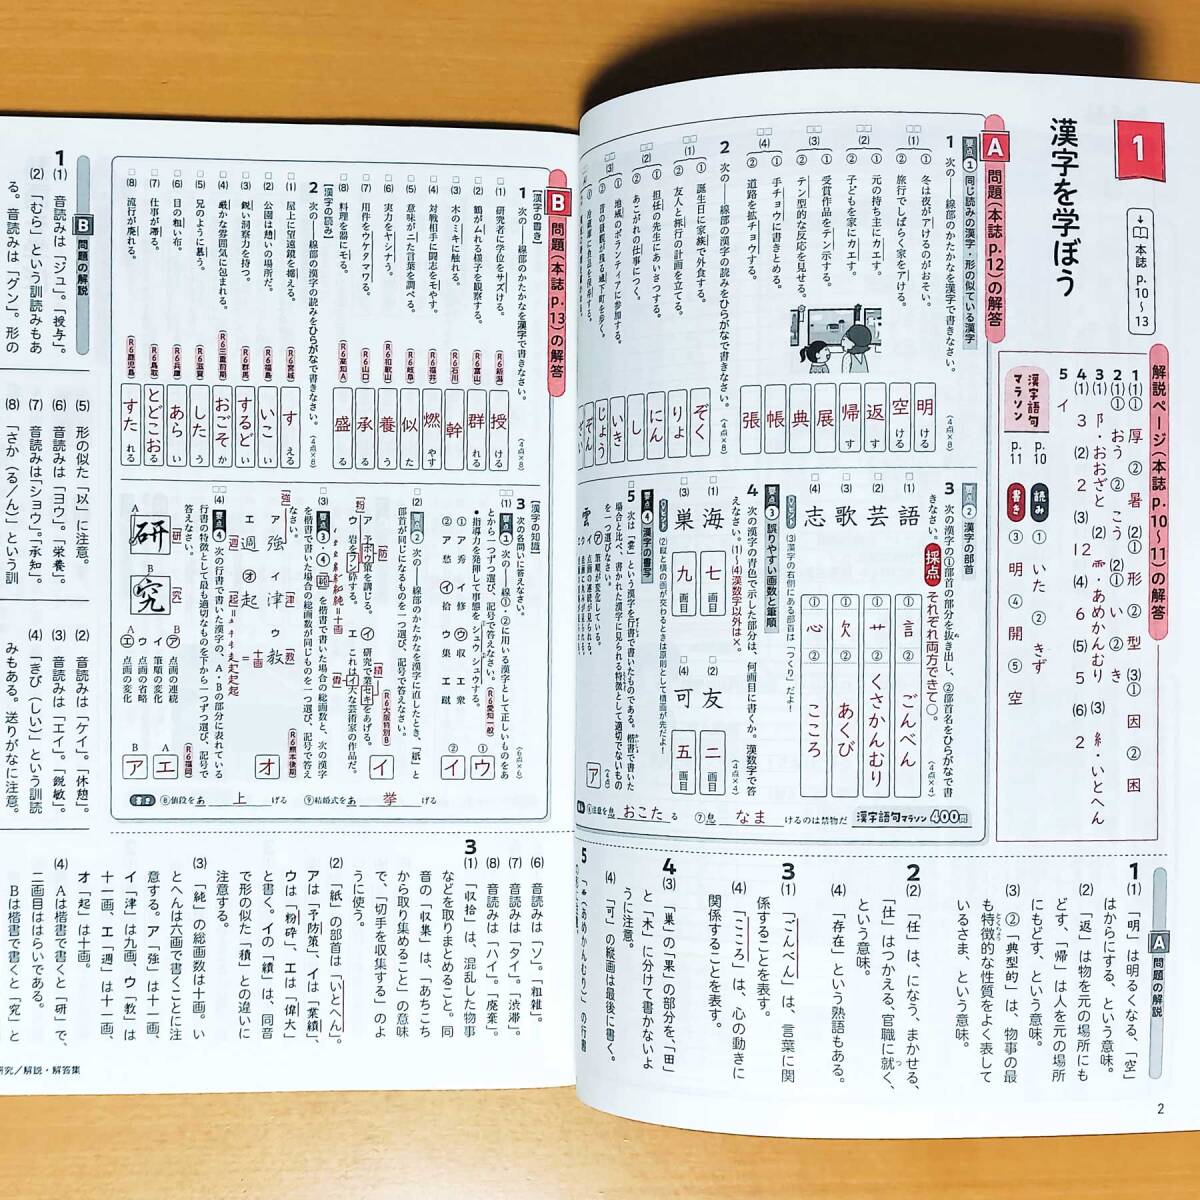 1
漢字を学ぼう
本誌 p.10〜13
解説ページ(本誌p.10〜11)の解答
1(1)① 厚 ② 暑 (2)① 形 ② 型 (3)① 因 ② 困
2(1)① おう ② こう (2)① い ② き
3(1) 阝・おおざと (2) ⻗・あめかんむり (3) 糸・いとへん
4(1) 3 (2) 2 (3) 12 (4) 6 (5) 5 (6) 2
5 イ
漢字語句マラソン
p.10 読み ① いた ② きず
p.11 書き ③ 明 ④ 開 ⑤ 空
A 問題(本誌p.12)の解答
要点1 同じ読みの漢字・形の似ている漢字
1 次の――線部のかたかなを漢字で書きなさい。(4点×8)
(1)① 冬は夜がアけるのがおそい。 明ける
② 旅行でしばらく家をアける。 空ける
(2)① 元の持ち主にカエす。 返す
② 子どもを家にカエす。 帰す
(3)① 受賞作品をテン示する。 展
② テン型的な反応を見せる。 典
(4)① 手チョウに書きとめる。 帳
② 道路を拡チョウする。 張
2 次の――線部の漢字の読みをひらがなで書きなさい。(4点×8)
(1)① 誕生日に家族で外食する。 ぞく
② 友人と旅行の計画を立てる。 りょ
(2)① 担任の先生にあいさつする。 にん
② あこがれの仕事につく。 し
(3)① 地域のボランティアに参加する。 いき
② 昔の景観が残る城下町を歩く。 じょう
要点2 漢字の部首
3 次の漢字の①部首の部分を抜き出し、②部首名をひらがなで書きなさい。 採点 それぞれ両方できて○。(4点×4)
語 ① 言 ② ごんべん
芸 ① 艹 ② くさかんむり
歌 ① 欠 ② あくび
志 ① 心 ② こころ
ヒント (3)漢字の右側にある部首は「つくり」だよ!
要点3 誤りやすい画数と筆順
4 次の漢字の青色で示した部分は、何画目に書くか。漢数字で答えなさい。(1)〜(4)漢数字以外は×。(4点×4)
(1) 海 七画目
(2) 友 二画目
(3) 巣 九画目
(4) 可 五画目
ヒント (2)縦と横の画が交わるときは原則として横画が先だよ!
要点4 漢字の書写
5 次は「雲」という漢字を行書で書いたものである。楷書で書いた場合と比べ、書かれた漢字に見られる特徴として適切でないものを一つ選びなさい。
ア 筆順が変化している。
(4点) ア
⑥注意を怠 おこた る ⑦怠 なま けるのは禁物だ 漢字語句マラソン400問
A 問題の解説
1 (1)「明」は明るくなる、「空」はからにする、という意味。
(2)「返」は物を元の場所にもどす、「帰」は人を元の場所にもどす、という意味。
(3)②「典型的」は、物事の最も特徴的な性質をよく表しているさま、という意味。
2 (2)「任」は、になう、まかせる、「仕」はつかえる、官職に就く、という意味。
(4)「存在」という熟語もある。
3 (1)「ごんべん」は、言葉に関係することを表す。
(4)「こころ」は、心の動きに関係することを表す。
4 (3)「巣」の「果」の部分を、「田」と「木」に分けて書かないように注意。
(4)「可」の縦画は最後に書く。
2
B 問題(本誌p.13)の解答
[漢字の書き]
1 次の――線部のかたかなを漢字で書きなさい。(4点×8)
(1) 研究者に学位をサズける。(R6新潟) 授ける
(2) 鶴がムれる様子を観察する。(R6富山) 群れる
(3) 木のミキに触れる。(R6石川) 幹
(4) 対戦相手に闘志をモやす。(R6福井) 燃やす
(5) 意味がニた言葉を調べる。(R6岐阜) 似た
(6) 実力をヤシナう。(R6和歌山) 養う
(7) 用件をウケタマワる。(R6山口) 承る
(8) 料理を器にモる。(R6高知A) 盛る
[漢字の読み]
2 次の――線部の漢字の読みをひらがなで書きなさい。(4点×8)
(1) 屋上に望遠鏡を据える。(R6宮城) すえる
(2) 公園は憩いの場所だ。(R6福島) いこい
(3) 鋭い洞察力を持つ。(R6群馬) するどい
(4) 厳かな雰囲気に包まれる。(R6三重前期) おごそか
(5) 兄のように慕う。(R6滋賀) したう
(6) 目の粗い布。(R6兵庫) あらい
(7) 仕事が滞る。(R6鳥取) とどこおる
(8) 流行が廃れる。(R6鹿児島) すたれる
[漢字の知識]
3 次の各問いに答えなさい。(6点×6)
(1) 要点1 次の――線①・②に用いる漢字として正しいものをあとから一つずつ選び、記号で答えなさい。(R6愛知一般)
・指導力を発揮して事態をシュウシュウする。
① ア 秀 イ 修 ウ 収 エ 衆
② ア 愁 イ 拾 ウ 集 エ 蹴
① ウ
② イ
(2) 要点2 次の――線部のかたかなを漢字に直したとき、「紙」と部首が同じになるものを一つ選び、記号で答えなさい。(R6大阪特別B)
ア 予ボウ策を講じる。[防]
イ 研究で業セキをあげる。[績]
ウ 岩をフンサイする。[粉]
エ これはイ大な芸術家の作品だ。[偉]
イ
オ (R6熊本後期)
ア 強 イ 津 ウ 教
エ 週 オ 起
(4) 要点4 次の行書で書いた漢字の、A・Bの部分に表れている行書の特徴として最も適切なものを下から一つずつ選び、記号で答えなさい。(R6福岡)
A 研[研]
B 究[究]
ア 点画の連続
イ 筆順の変化
ウ 点画の省略
エ 点画の変化
A エ
B ア
書き ⑧値段をあ 上 げる ⑨結婚式をあ 挙 げる
B 問題の解説
1 (1) 音読みは「ジュ」。「授与」。
(2)「むら」という訓読みもある。音読みは「グン」。形の
(5) 形の似た「以」に注意。
(6) 音読みは「ヨウ」。「栄養」。
(7) 音読みは「ショウ」。「承知」。
(8)「さか(る/ん)」という訓
(2) 音読みは「ケイ」。「休憩」。
(3) 音読みは「エイ」。「鋭敏」。
(4)「きび(しい)」という訓読みもある。送りがなに注意。
(6) 音読みは「ソ」。「粗雑」。
(7) 音読みは「タイ」。「渋滞」。
(8) 音読みは「ハイ」。「廃棄」。
3 (1)「収拾」は、混乱した物事などを取りまとめること。同音の「収集」は、あちこちから取り集めること」の意味で、「切手を収集する」のように使う。
(2)「紙」の部首は「いとへん」。アは「予防策」、イは「業績」、ウは「粉砕」、エは「偉大」と書く。イの「績」は、同音で形の似た「積」との違いに注意する。
(3)「純」の総画数は十画。いとへんは六画で書くことに注意する。ア「強」は十一画、イ「津」は九画、ウ「教」は十一画、エ「週」は十一画、オ「起」は十画。
(4) Aは楷書で書くと「研」で、二画目ははらいである。
Bは楷書で書くと「究」と
研究/解説・解答集